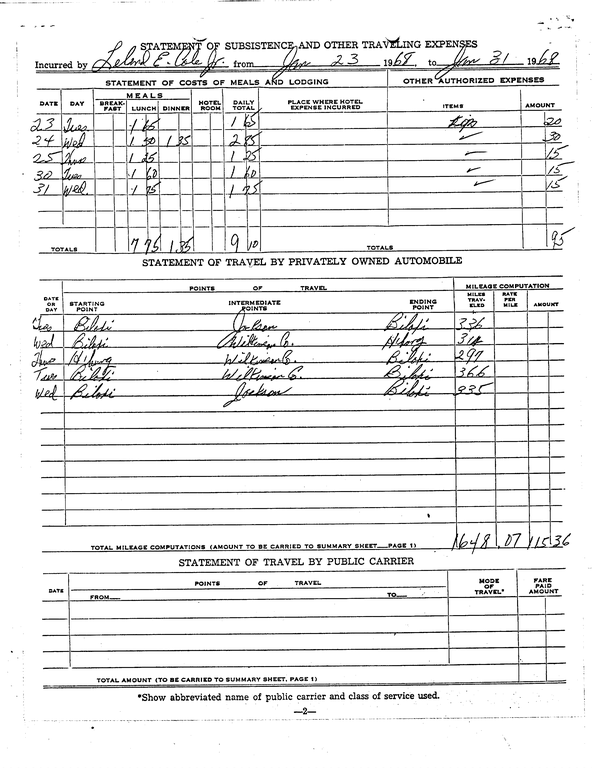 STATEMENT OF SUBSISTENCE AND OTHER TRAVELING EXPENSES
Incurred by Leland E. Cole Jr. from Jan 23 1968. to Jan 31 1968
STATEMENT OF COSTS OF MEALS AND LODGING OTHER AUTHORIZED EXPENSES
DATE DAY MEALS BREAK-FAST LUNCH DINNER HOTEL ROOM DAILY TOTAL PLACE WHERE HOTEL EXPENSE INCURRED ITEMS AMOUNT
23 Tues 1 65 1 65 tips 20
24 Wed 1 50 1 35 2 85 30
25 Thus 1 25 1 25 15
30 Tues 1 60 1 60 15
31 Wed. 1 75 1 75 15
TOTALS 7 75 1 35 9 10 TOTALS 95
STATEMENT OF TRAVEL BY PRIVATELY OWNED AUTOMOBILE
POINTS OF TRAVEL MILEAGE COMPUTATION
DATE OR DAY STARTING POINT INTERMEDIATE POINTS ENDING POINT MILES TRAV-ELED RATE PER MILE AMOUNT
Tues Biloxi Jackson Biloxi 336
Wed Biloxi Wilkinson C. 314
Thus Wilkinson C. Biloxi 297
Tues Biloxi Wilkinson C. Biloxi 366
Wed Biloxi Jackson Biloxi 335
TOTAL MILEAGE COMPUTATIONS (AMOUNT TO BE CARRIED TO SUMMARY SHEET—PAGE 1) 1648 .07 115 36
STATEMENT OF TRAVEL BY PUBLIC CARRIER
DATE POINTS OF TRAVEL MODE OF TRAVEL* FARE PAID AMOUNT
FROM— TO—
TOTAL AMOUNT (TO BE CARRIED TO SUMMARY SHEET, PAGE 1)
*Show abbreviated name of public carrier and class of service used.
—2—